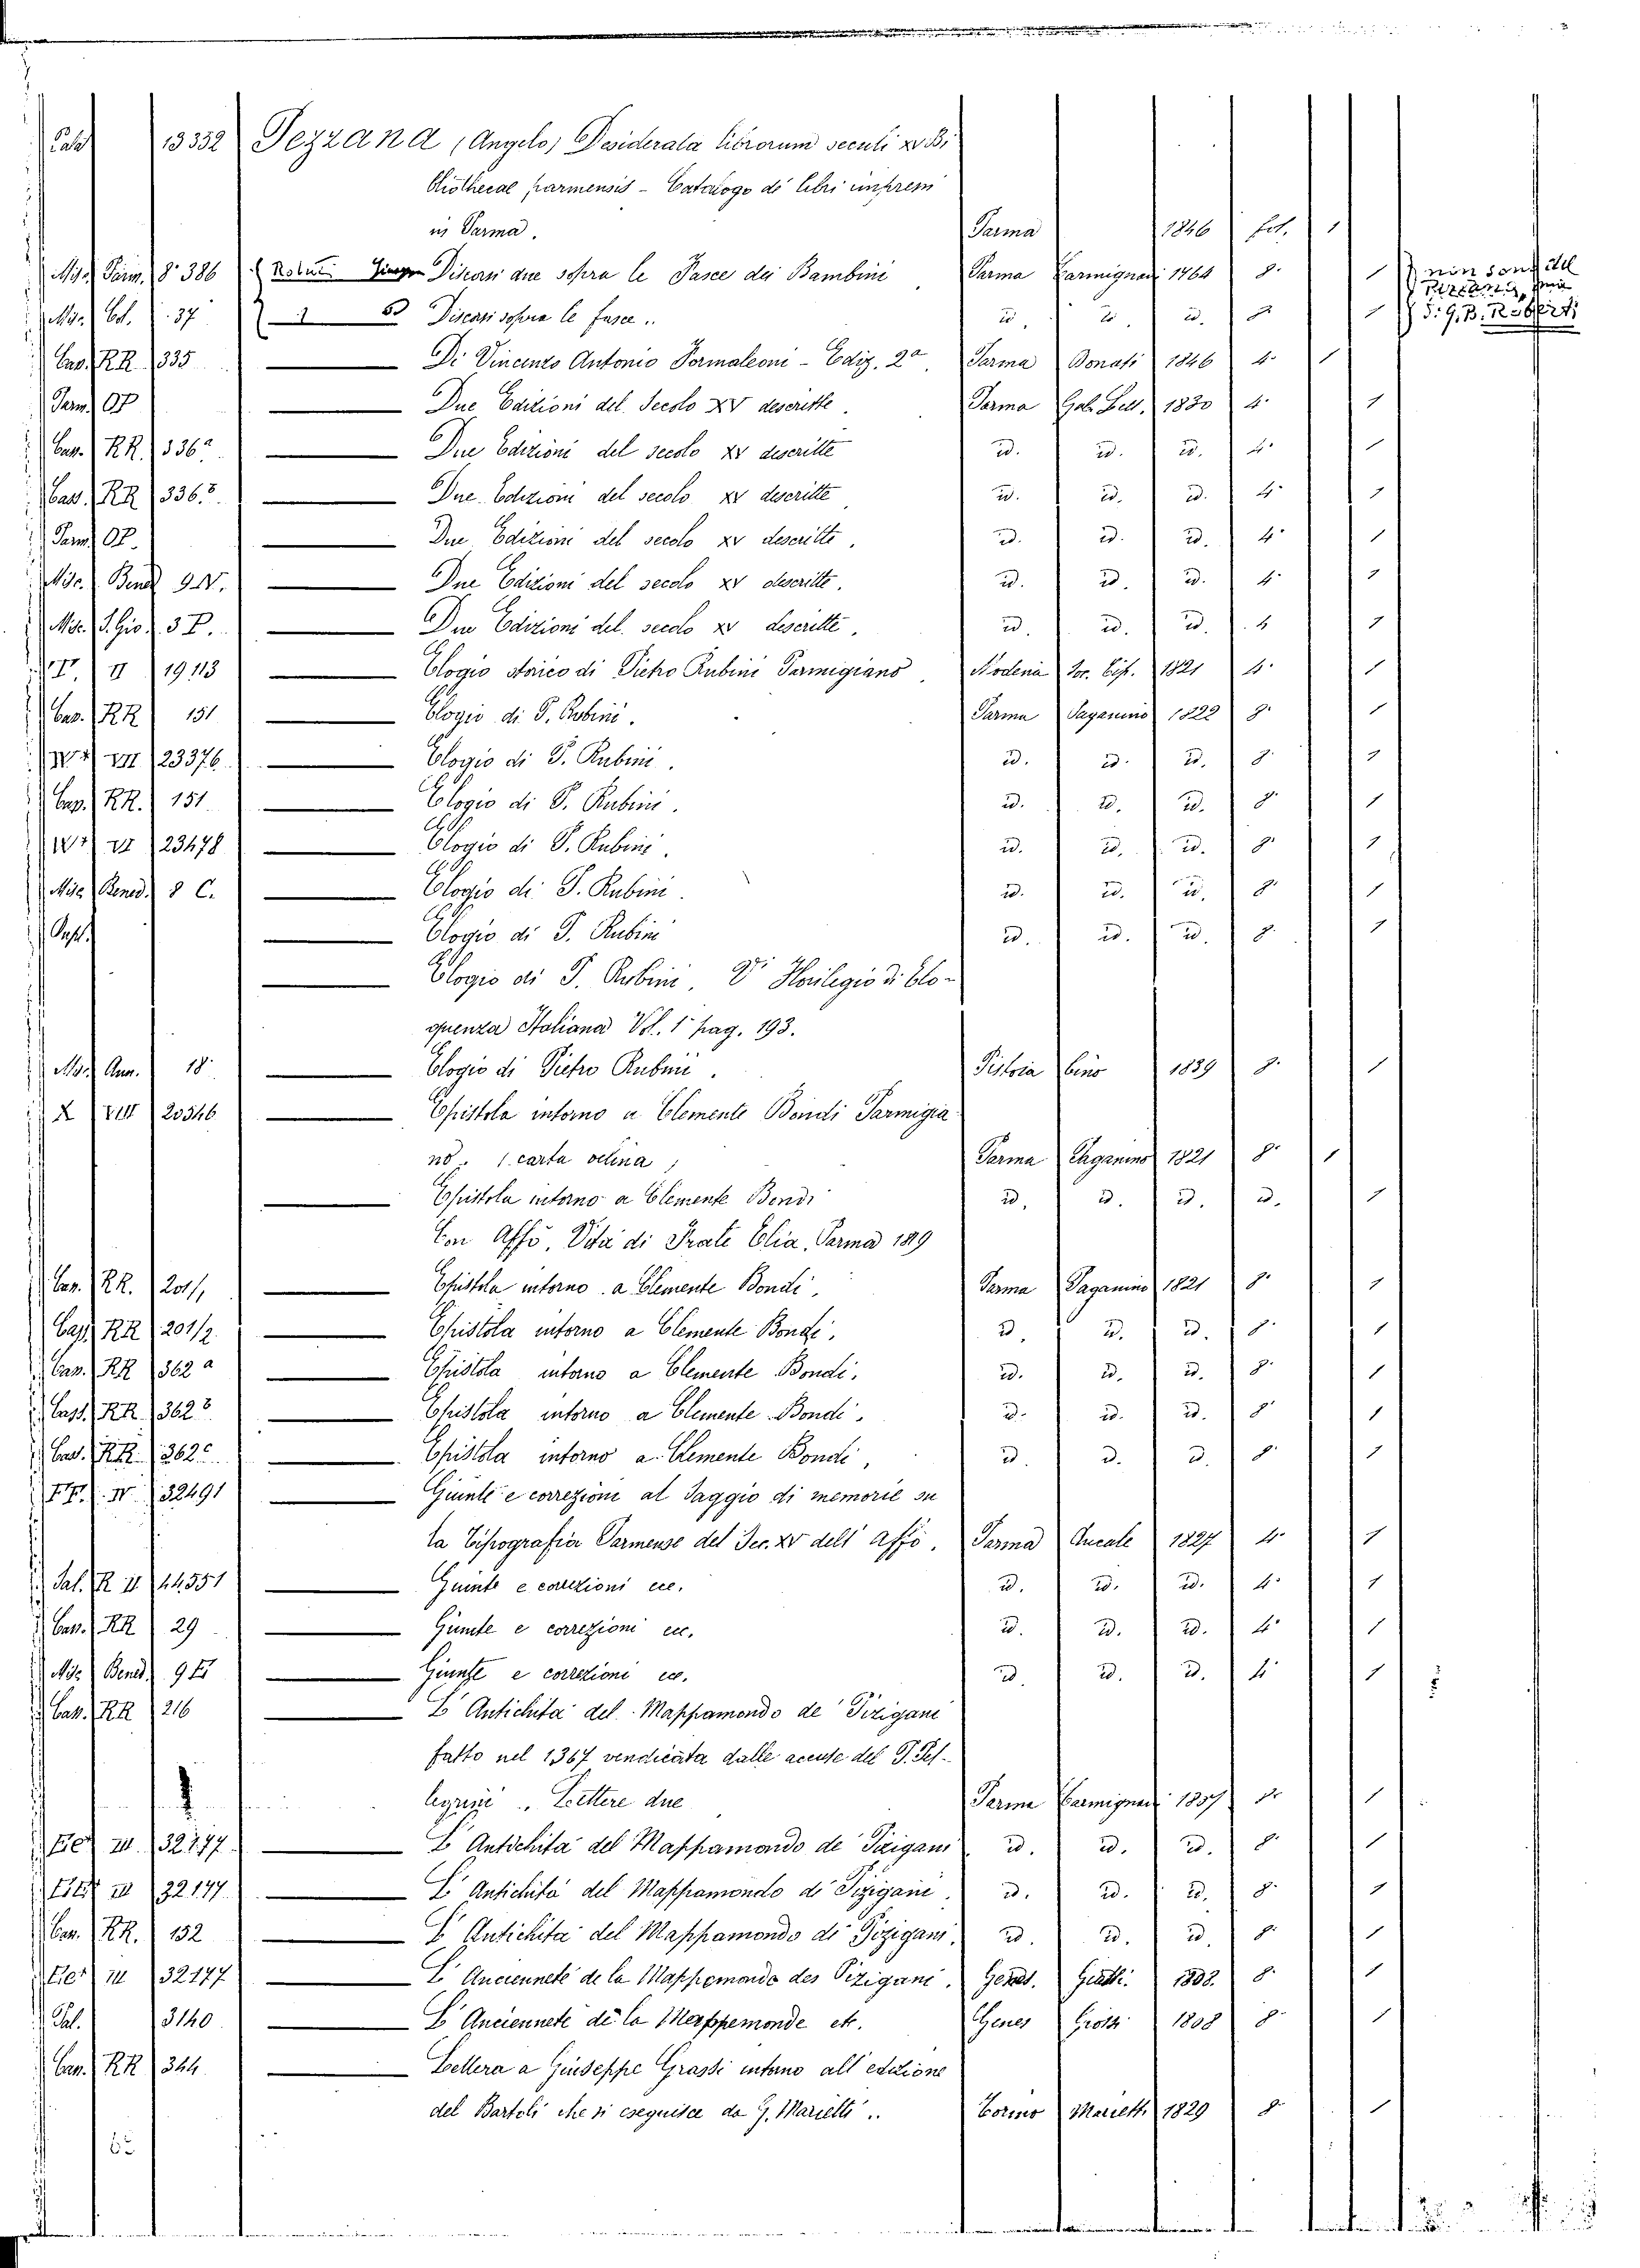 13332 Pezzana (Angelo) Desiderata librorum seculi xv Bi
bliothecae parmensis - Catalogo di libri impressi
in Parma. Parma 1846 fol. 1
Misc. Parm. 8° 386 Roberti Discorsi due sopra le Fasce dei Bambini Parma Carmignani 1764 8. 1 non sono del
Pezzana, ma
Misc. 37 Discorsi sopra le fasce.. id. id. id. 1 di G. B. Roberti
Cas. RR. 335 Di Vincenzo Antonio Formaleoni - Ediz. 2a. Parma Donati 1846 4. 1
Parm. Due Edizioni del Secolo XV descritte. Parma 1830 4. 1
Cas. RR. 336a Due Edizioni del secolo xv descritte id. id. id. 4. 1
Cas. RR 336b Due Edizioni del secolo xv descritte id. id. id. 4. 1
Parm. Due Edizioni del secolo xv descritte. id. id. id. 4. 1
Misc. Bened. Due Edizioni del secolo xv descritte. id. id. id. 4. 1
Misc. S. Gio. Due Edizioni del secolo xv descritte. id. id. id. 4. 1
II 19113 Elogio storico di Pietro Rubini Parmigiano. Modena 1821 4. 1
Cas. RR 151 Elogio di P. Rubini. Parma Paganino 1822 8. 1
VII 23376 Elogio di P. Rubini. id. id. id. 8. 1
Cas. RR. 151 Elogio di P. Rubini. id. id. id. 8. 1
23478 Elogio di P. Rubini. id. id. id. 8. 1
Misc. Bened. 8 C. Elogio di P. Rubini. id. id. id. 8. 1
Elogio di P. Rubini id. id. id. 8. 1
Elogio di P. Rubini. Vi Florilegio di Elo-
quenza Italiana Vol. 1° pag. 193.
18 Elogio di Pietro Rubini. Pistoia Cino 1839 8. 1
X VIII 20346 Epistola intorno a Clemente Bondi Parmigia
no. (carta velina) Parma Paganino 1821 8. 1
Epistola intorno a Clemente Bondi id. id. id. id. 1
Con Affò, Vita di Frate Elia. Parma 1819
Cas. RR. 201/1 Epistola intorno a Clemente Bondi. Parma Paganino 1821 8. 1
Cas. RR 201/2 Epistola intorno a Clemente Bondi. id. id. id. 8. 1
Cas. RR 362 a Epistola intorno a Clemente Bondi. id. id. id. 8. 1
Cas. RR 362 b Epistola intorno a Clemente Bondi. id. id. id. 8. 1
Cas. RR 362 c Epistola intorno a Clemente Bondi, id. id. id. 8. 1
32491 Giunte e correzioni al Saggio di memorie su
la Tipografia Parmense del Sec. xv dell' Affò. Parma Ducale 1827 4. 1
Pal. R II 44551 Giunte e correzioni ec. id. id. id. 4. 1
Cas. RR 29 Giunte e correzioni ec. id. id. id. 4. 1
Misc. Bened. Giunte e correzioni ec. id. id. id. 4. 1
Cas. RR 216 L'Antichità del Mappamondo de' Pizigani
fatto nel 1367 vendicata dalle accuse del P. Pel-
legrini. Lettere due Parma Carmignani 1807 8. 1
III 32147 L'Antichità del Mappamondo de' Pizigani id. id. id. 8. 1
III 32147 L'Antichità del Mappamondo de' Pizigani. id. id. id. 8. 1
Cas. RR. 152 L'Antichità del Mappamondo de' Pizigani. id. id. id. 8. 1
III 32147 L'Ancienneté de la Mappemonde des Pizigani. Genes. 1808. 8. 1
Pal. 3140 L'Ancienneté de la Mappemonde etc. Genes 1808 8. 1
Cas. RR 344 Lettera a Giuseppe Grassi intorno all'edizione
del Bartoli che si eseguisce da G. Marietti.. Torino Marietti 1829 8. 1